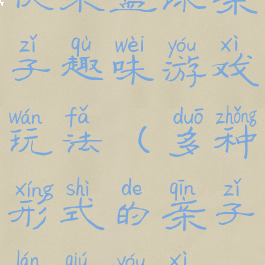 zǐ qù wèi yóu xì
子趣味游戏
wán fǎ duō zhǒng
玩法（多种
xíng shì de qīn zǐ
形式的亲子
lán qiú yóu xì